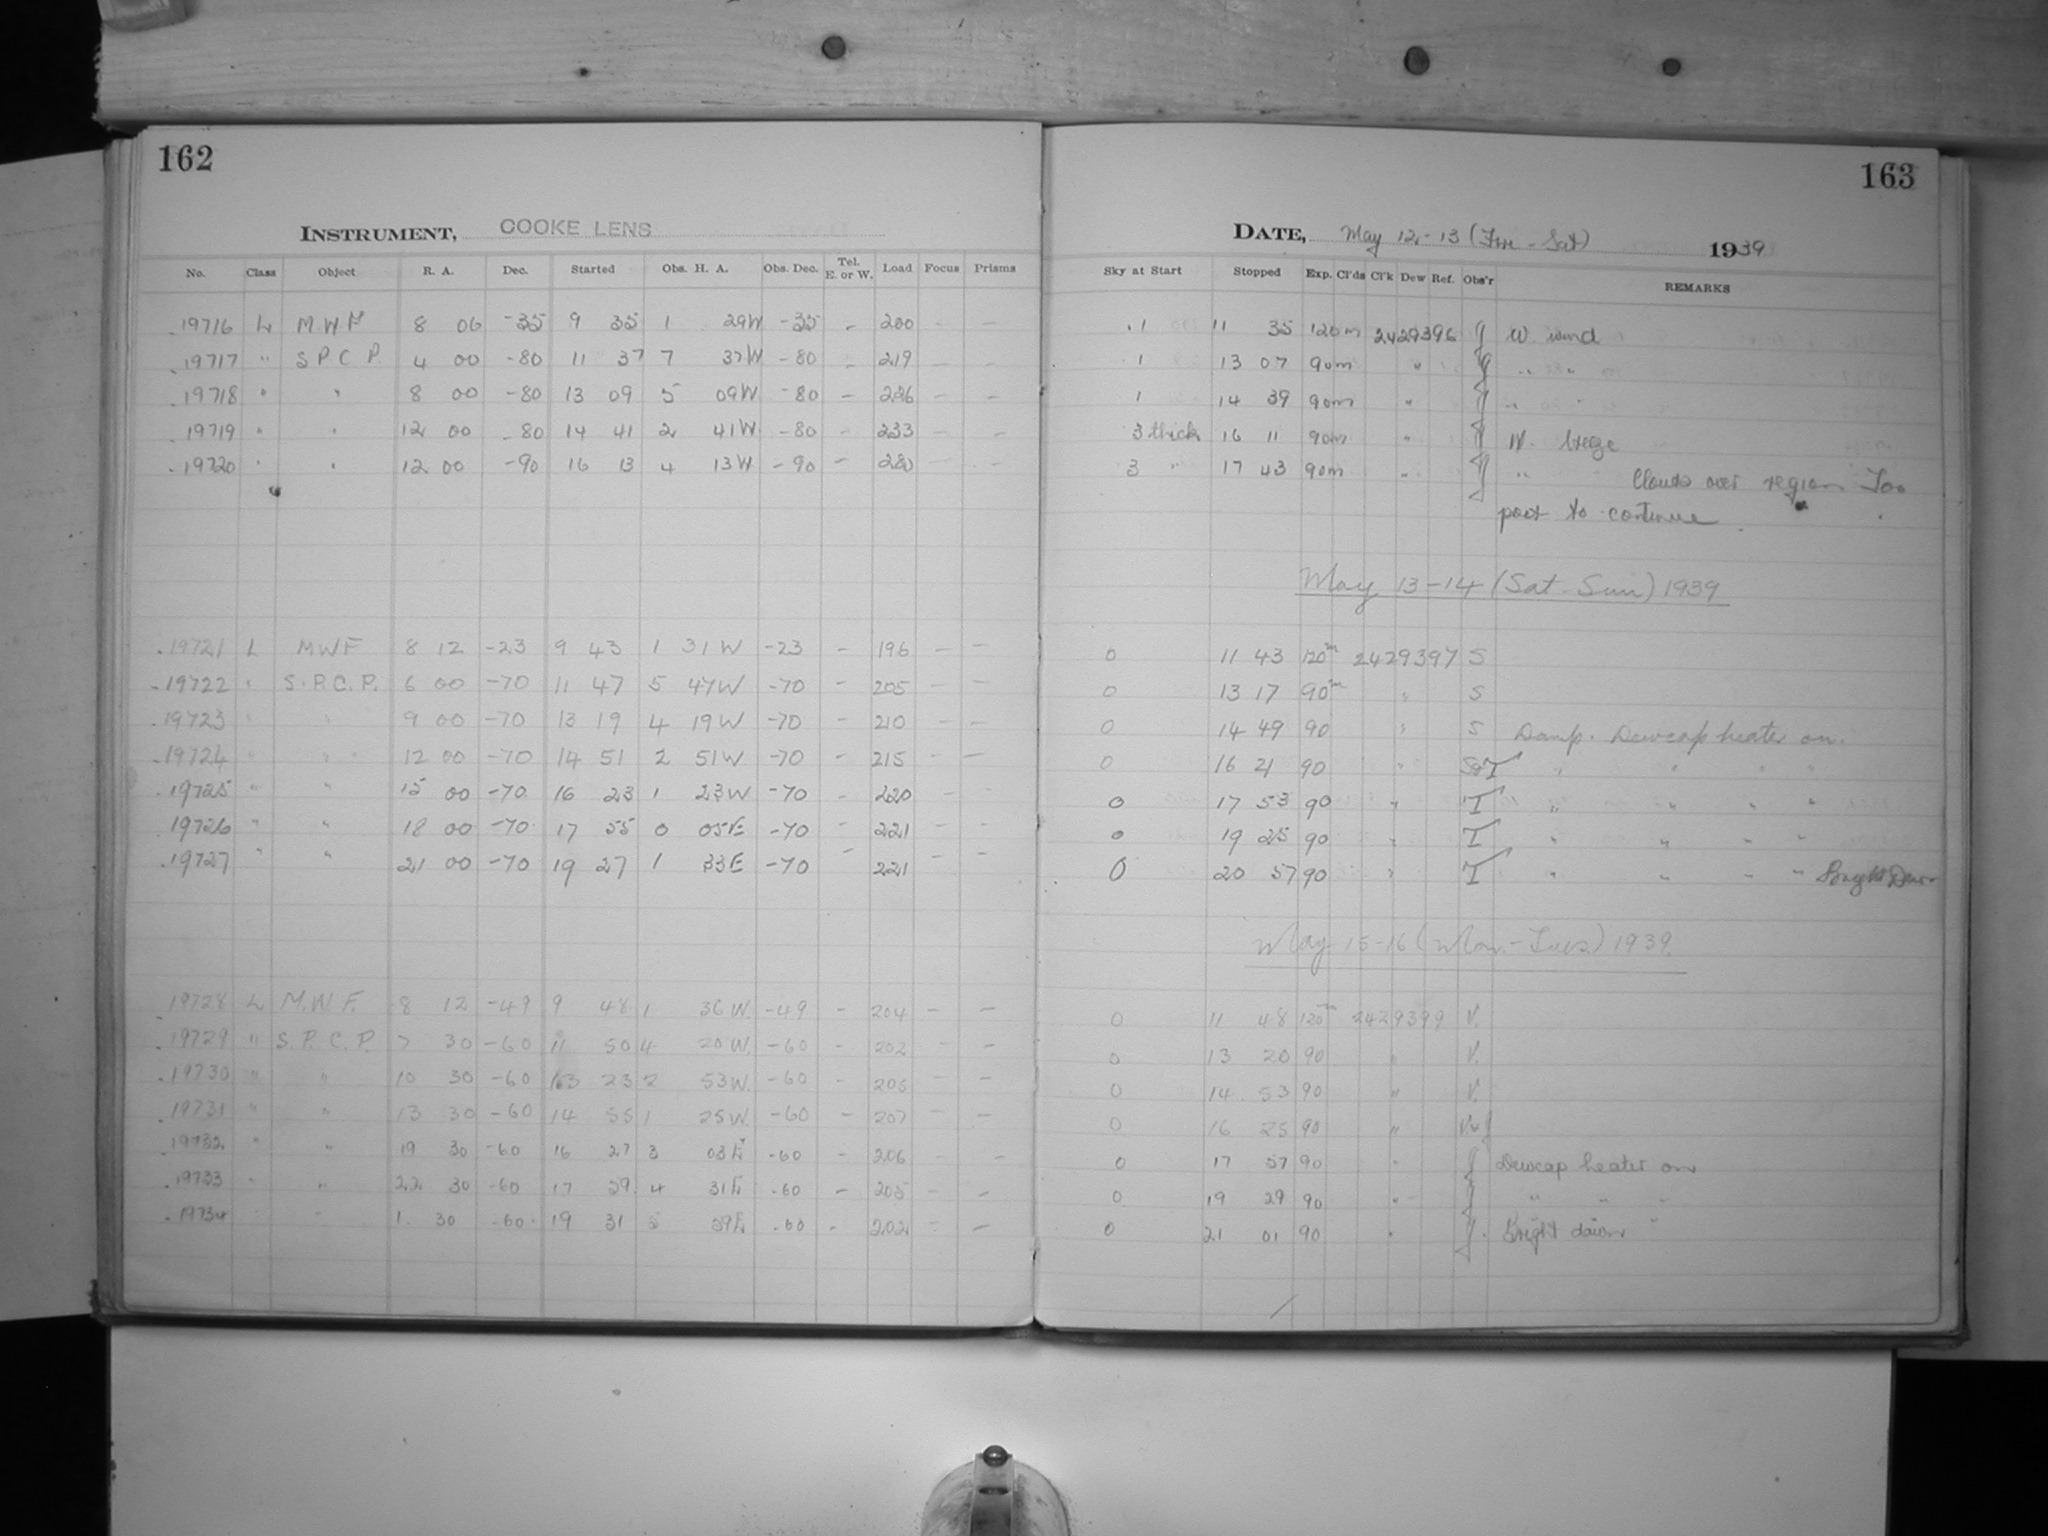 162
INSTRUMENT, COOKE LENS
No. Class Object R. A. Dec. Started Obs. H. A. Obs. Dec. Tel. E. or W. Load Focus Prisms
19716 L M W F 8 06 -35 9 35 1 29W -35 - 200 - -
19717 " S P C P. 4 00 -80 11 37 7 37W -80 - 219 - -
19718 " " 8 00 -80 13 09 5 09W -80 - 226 - -
19719 " " 12 00 -80 14 41 2 41W -80 - 233 - -
19720 " " 12 00 -90 16 13 4 13W -90 - 280 - -
19721 L MWF 8 12 -23 9 43 1 31W -23 - 196 - -
19722 " S.P.C.P. 6 00 -70 11 47 5 47W -70 - 205 - -
19723 " " 9 00 -70 13 19 4 19W -70 - 210 - -
19724 " " 12 00 -70 14 51 2 51W -70 - 215 - -
19725 " " 15 00 -70 16 23 1 23W -70 - 220 - -
19726 " " 18 00 -70 17 55 0 05E -70 - 221 - -
19727 " " 21 00 -70 19 27 1 33E -70 - 221 - -
19728 L M.W.F. 8 12 -49 9 48 1 36W. -49 - 204 - -
19729 " S.P.C.P. 7 30 -60 11 50 4 20W. -60 - 202 - -
19730 " " 10 30 -60 13 23 2 53W. -60 - 205 - -
19731 " " 13 30 -60 14 55 1 25W. -60 - 207 - -
19732 " " 19 30 -60 16 27 3 03E -60 - 206 - -
19733 " " 22 30 -60 17 59 4 31E -60 - 205 - -
19734 " " 1. 30 -60 19 31 5 59E -60 - 202 - -
163
DATE, May 12-13 (Fri - Sat) 1939
Sky at Start Stopped Exp. Cl'ds Cl'k Dew Ref. Obs'r REMARKS
1 11 35 120m 2429396 J W. wind
1 13 07 90m " J " "
1 14 39 90m " J " "
3 thick 16 11 90m " J W. breeze
3 " 17 43 90m " J " " Clouds over region Too
poor to continue.
May 13-14 (Sat-Sun) 1939
0 11 43 120m 2429397 S
0 13 17 90m " S
0 14 49 90 " S Damp. Dewcap heater on.
0 16 21 90 " S&T " " " "
0 17 53 90 " T " " " "
0 19 25 90 " T " " " "
0 20 57 90 " T " " " " Bright Dawn
May 15-16 (Mon.-Tues.) 1939.
0 11 48 120m 2429399 V.
0 13 20 90 " V.
0 14 53 90 " V.
0 16 25 90 " V+J
0 17 57 90 " J Dewcap heater on
0 19 29 90 " J " " "
0 21 01 90 " J. Bright dawn "